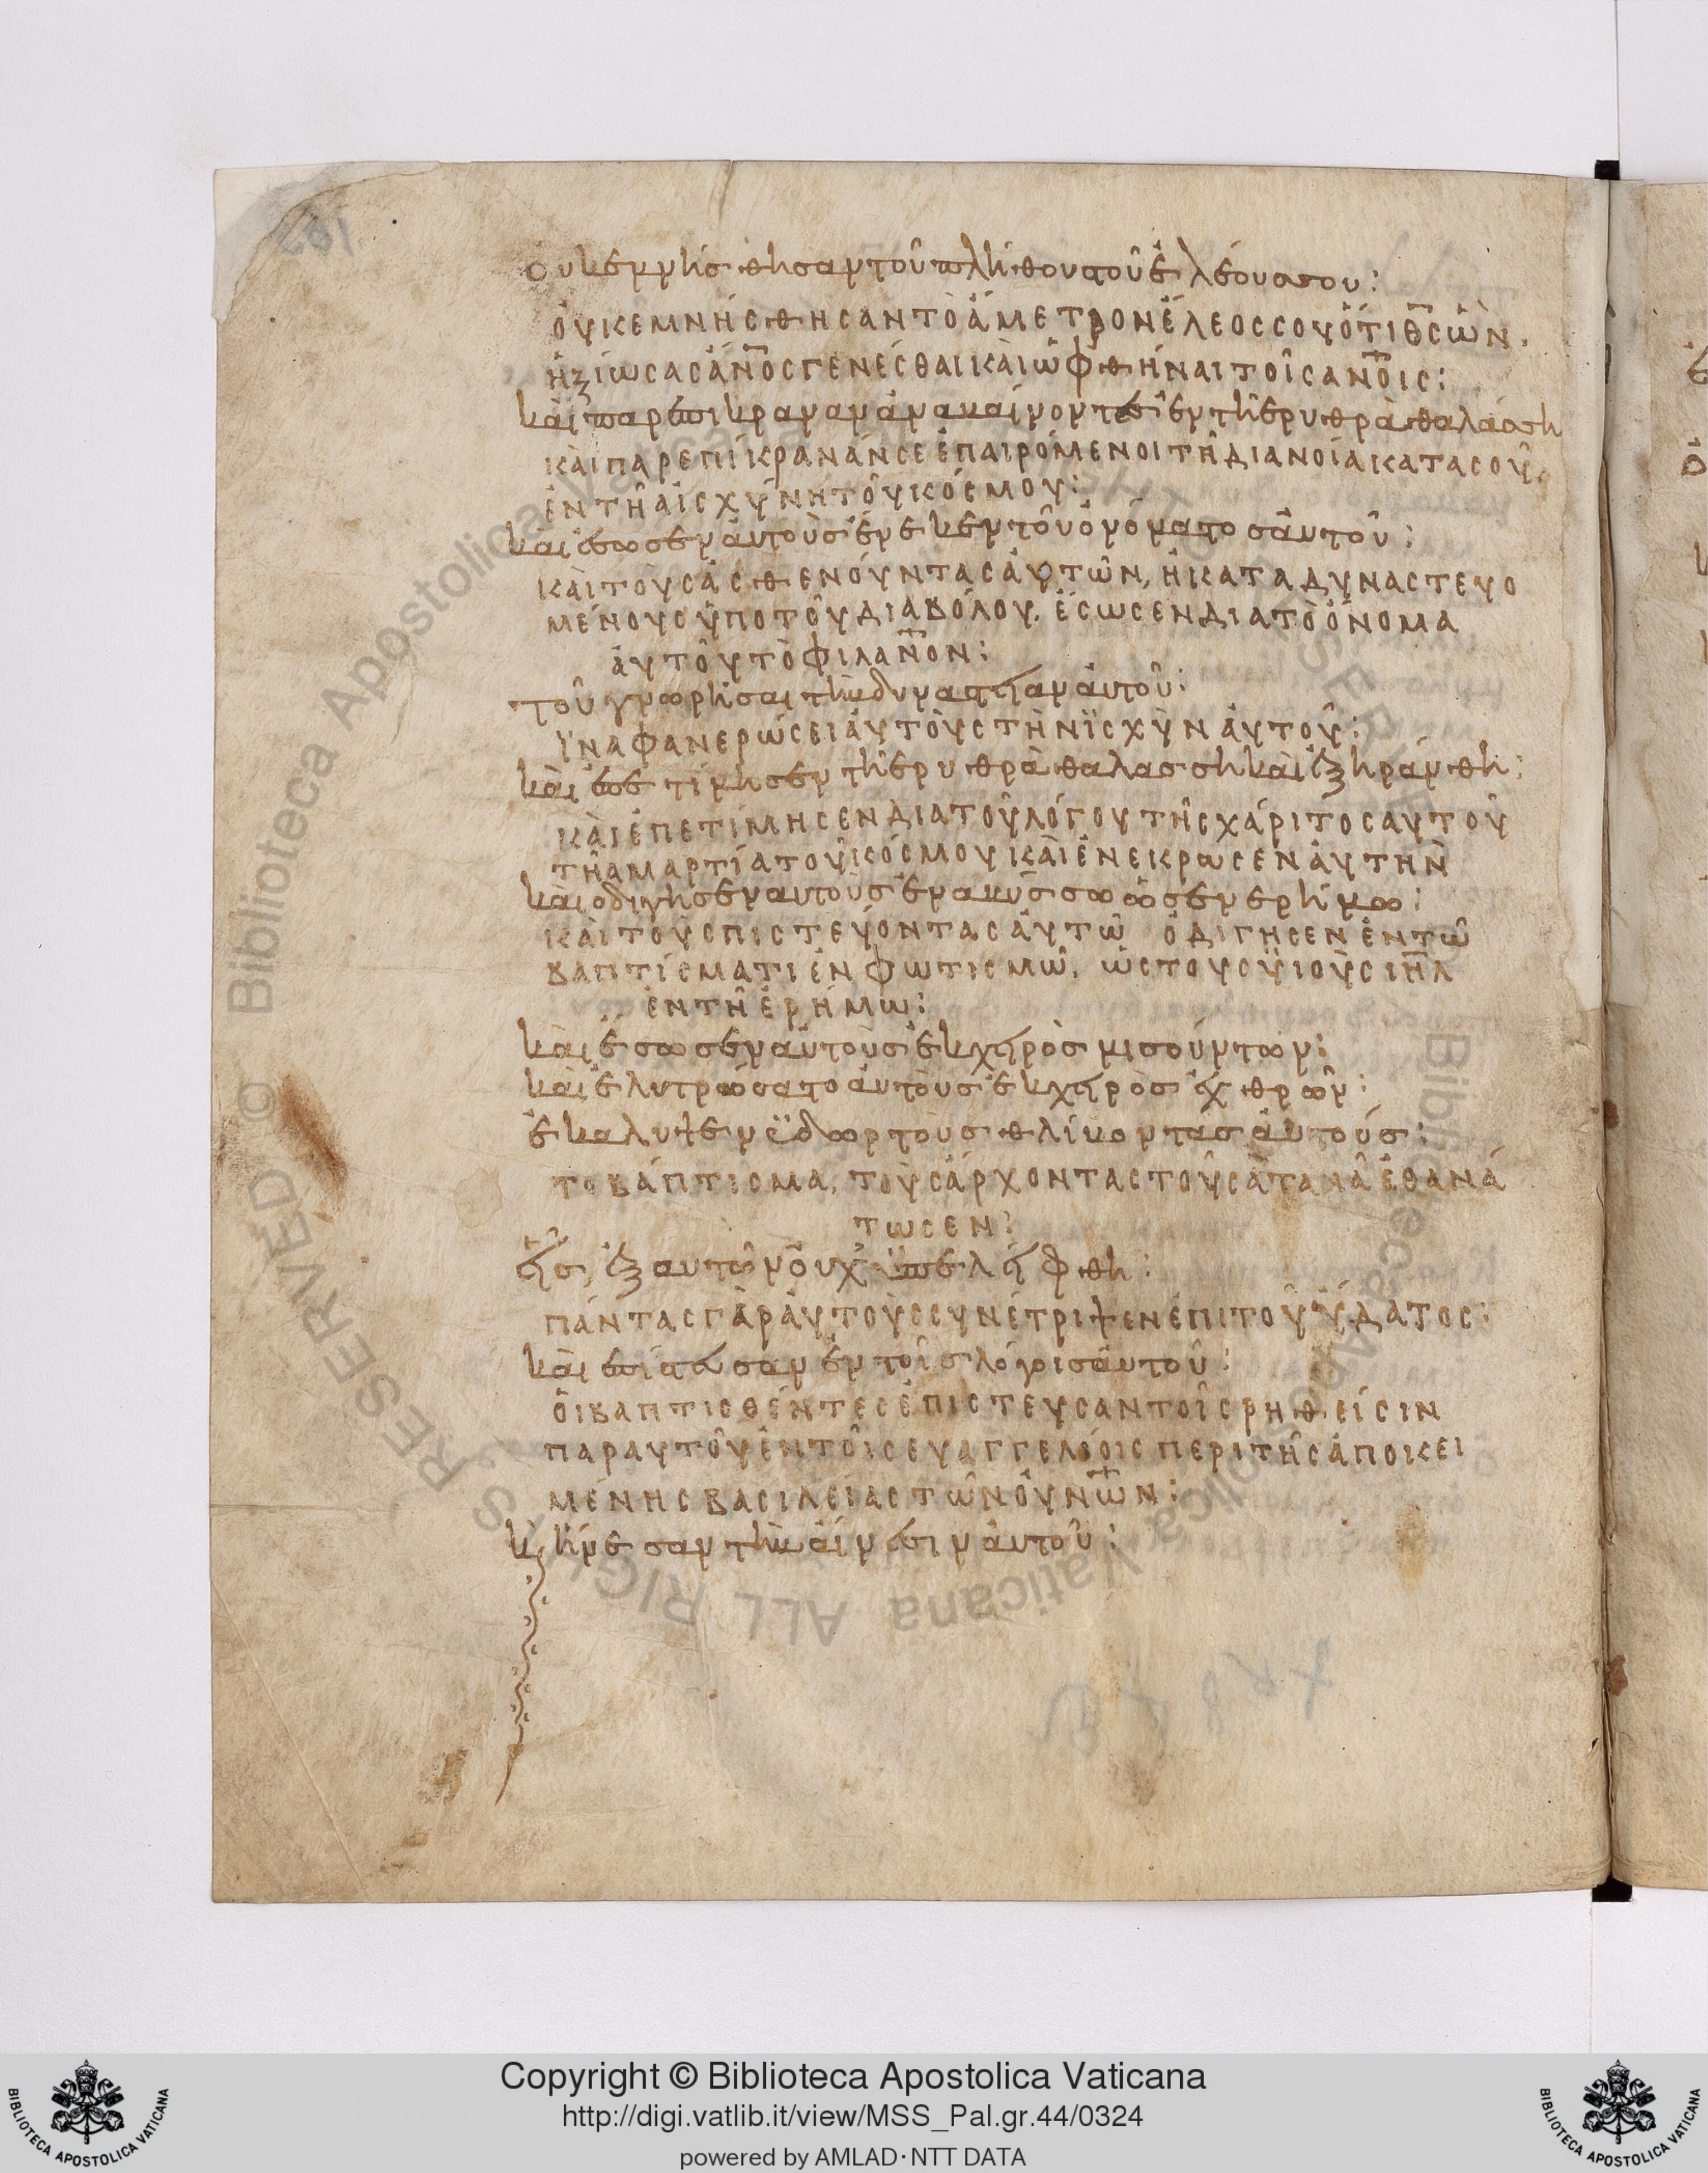 ουκ εμνήσθησαν τοῦ πλήθους τοῦ ἐλέους σου:
ὀυκ ἐμνήσθησαν τὸ ἄμετρον ἔλεος σου ὅτι θς ὢν.
ἠξίωσας ἄνος γενέσθαι καὶ ὠφθῆναι τοῖς ανοις:
καὶ παρεπικραναν ἀναβαίνοντες ἐν τῆ ἐρυθρὰ θαλάσση
κὰι παρεπίκραναν σε ἐπαιρόμενοι τῆ διανοία κατα σοῦ,
ἐν τῆ αἰσχύνη τοῦ κόσμου:
καὶ ἔσωσεν ἀυτοὺς ἕνεκεν τοῦ ὀνόματος ἀυτοῦ:
κὰι τοὺς ἀσθενούντας ἀυτῶν, ἢ καταδυναστευο
μένους ὑπο τοῦ διαβόλου, ἔσωσεν δια τὸ ὄνομα
ἀυτοῦ τὸ φιλανον:
τοῦ γνωρῆσαι τὴν δυναστείαν ἀυτοῦ:
ἵνα φανερώσει ἀυτοὺς τὴν ϊσχὺν ἀυτοῦ:
καὶ ἐπετίμησεν τῆ ἐρυθρὰ θαλασση καὶ ἐξηράνθη:
κὰι ἐπετίμησεν δια τοῦ λόγου τῆς χάριτος αυτοῦ
τῆ αμαρτία τοῦ κόσμου κὰι ἐνεκρωσεν ἀυτὴν
καὶ οδιγησεν αυτοὺς ἐν αβύσσω ὡς ἐν ερήμω:
κὰι τοὺς πιστεύοντας ἀυτῶ ὁδιγησεν ἐν τῶ
βαπτίσματι ἐν φωτισμῶ, ὡς τους ὑιοὺς ιηλ
ἐν τῆ ἐρήμω:
καὶ ἔσωσεν ἀυτοὺς ἐκ χειρὸς μισούντων:
καὶ ἐλυτρώσατο ἀυτοὺς ἐκ χειρὸς ἐχθρῶν:
ἐκαλυψεν ϋδωρ τοὺς θλίβοντας ἀυτούς:
το βάπτισμα, τοὺς ἄρχοντας τοῦ σατανᾶ ἐθανά
τωσεν:
εἷς ἐξ αυτῶν ὀυχ ὑπελείφθη:
πάντας γὰρ ἀυτοὺς συνέτριψεν ἐπι τοῦ ὕδατος:
καὶ ἐπίστευσαν ἐν τοῖς λόγοις ἀυτοῦ:
ὁι βαπτισθέντες ἐπιστευσαν τοῖς ρηθείσιν
παρ αυτοῦ ἐν τοῖς ευαγγελίοις περι τῆς ἀποκει
μένης βασιλείας τῶν ὀυνων:
κ ήνεσαν τὴν ἀίνεσιν ἀυτοῦ:
Copyright © Biblioteca Apostolica Vaticana
http://digi.vatlib.it/view/MSS_Pal.gr.44/0324
powered by AMLAD·NTT DATA
BIBLIOTECA APOSTOLICA VATICANA
BIBLIOTECA APOSTOLICA VATICANA